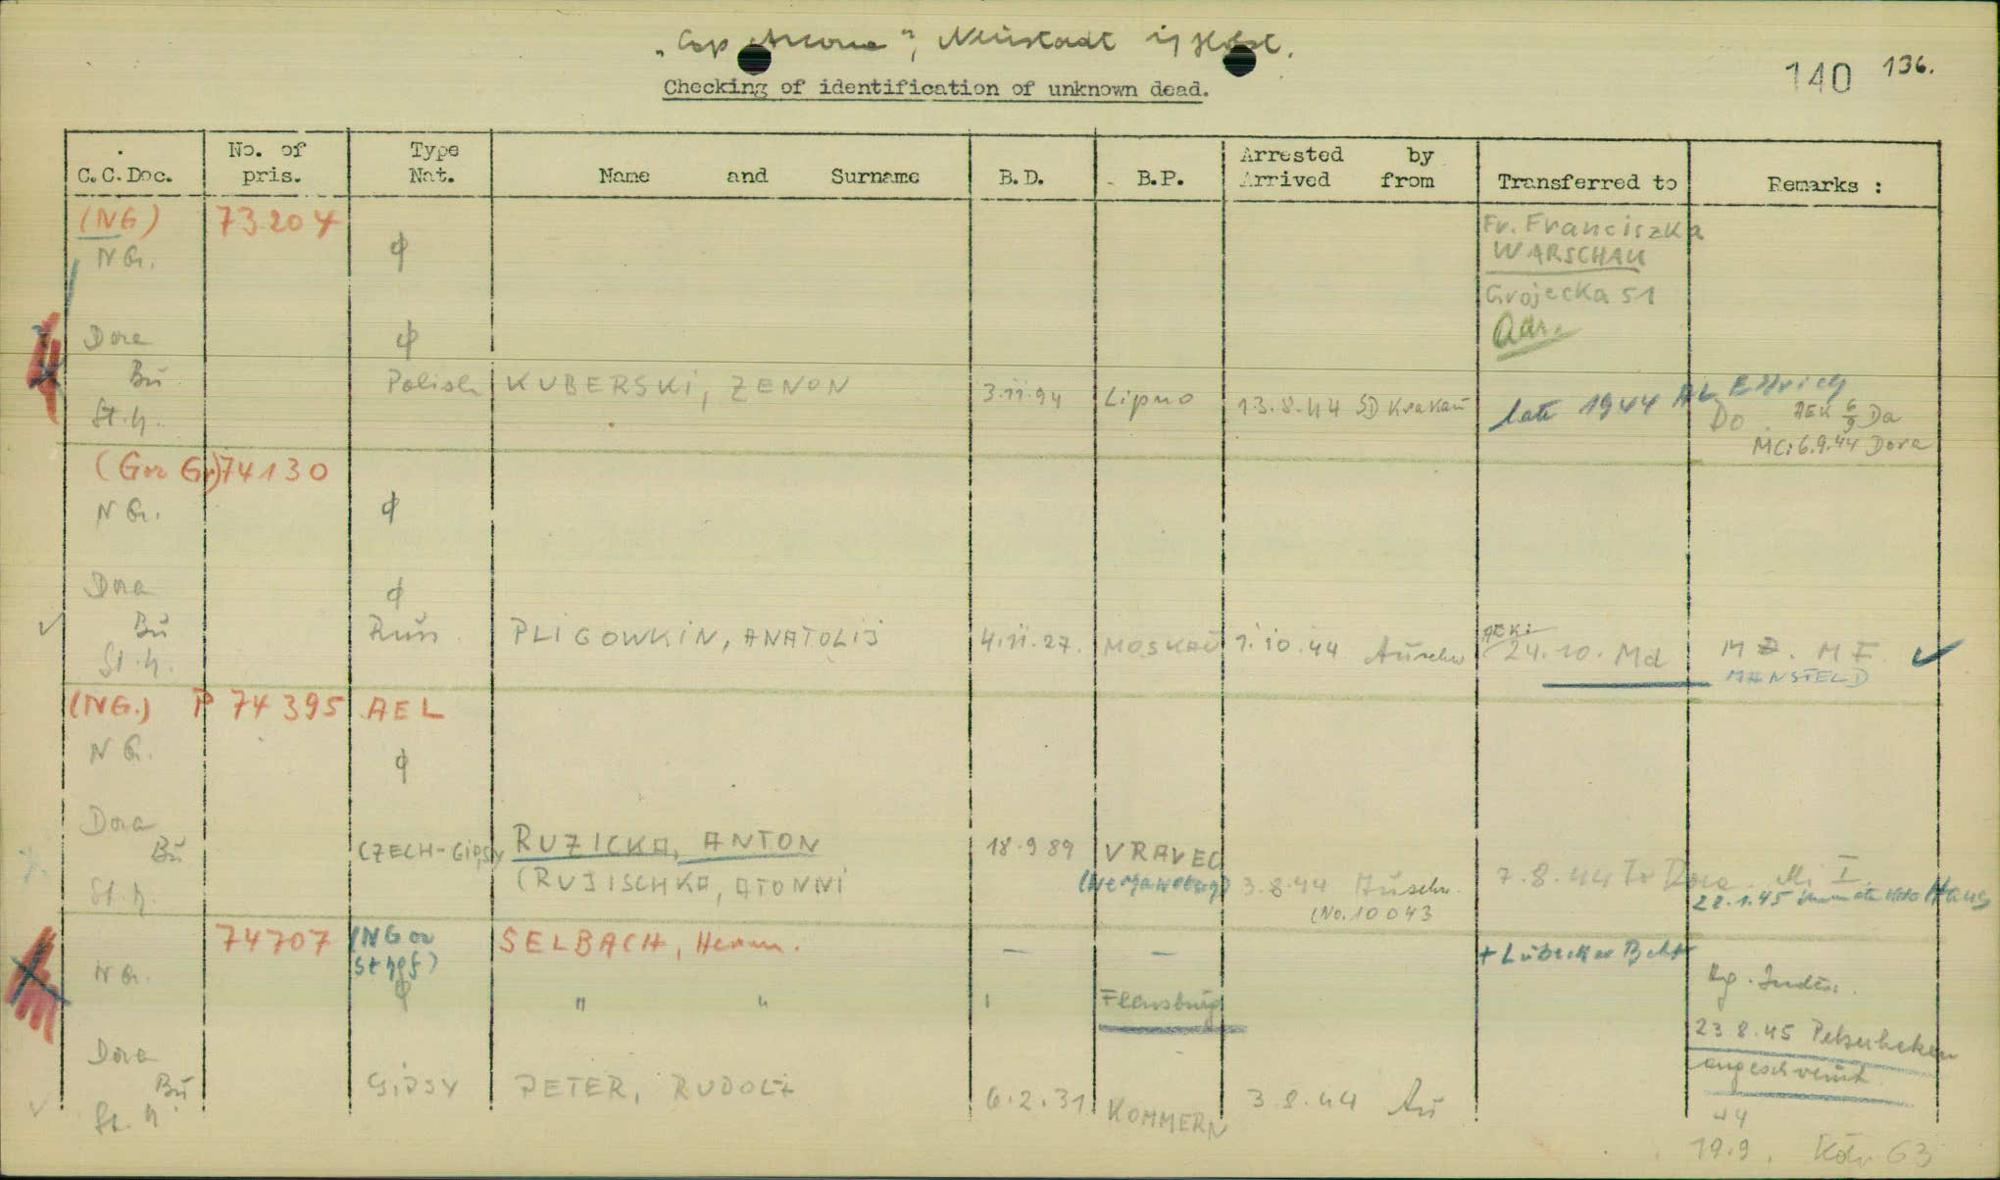 „Cap Arcona", Neustadt i/Holst.
Checking of identification of unknown dead.
140 136.
C.C.Doc. No. of pris. Type Nat. Name and Surname B.D. B.P. Arrested by Arrived from Transferred to Remarks :
(NG) 73204 Fr. Franciszka
NG. ϕ WARSCHAU
Grojecka 51
Dora ϕ Adr.
Bu Polish KUBERSKI, ZENON 3.11.94 Lipno 13.8.44 SD Krakau late 1944 AL Ellrich
St.h. Do. AEK 6/9 Da
MC: 6.9.44 Dora
(Gr) 74130
NG. ϕ
Dora ϕ
Bu Russ PLIGOWKIN, ANATOLIJ 4.11.27. MOSKAU 1.10.44 Auschw 24.10. Md
St.h. MANSFELD
(NG.) P 74395 AEL
NG. ϕ
Dora
Bu CZECH-GIPSY RUZICKA, ANTON 18.9 89 VRAVEC
St.h. (RUJISCHKA, ATONNI 3.8.44 Auschw. 7.8.44 To Dora
(No. 10043 22.1.45
74707 (NG or SELBACH, Herm. — — + Lübecker Bcht
NG. ϕ " " Flensburg
23 8.45 Pelzerhaken
angeschwemmt
Dora
Bu Gipsy PETER, RUDOLF 6.2.31 KOMMERN 3.8.44 Au
St.h. 44
19.9.